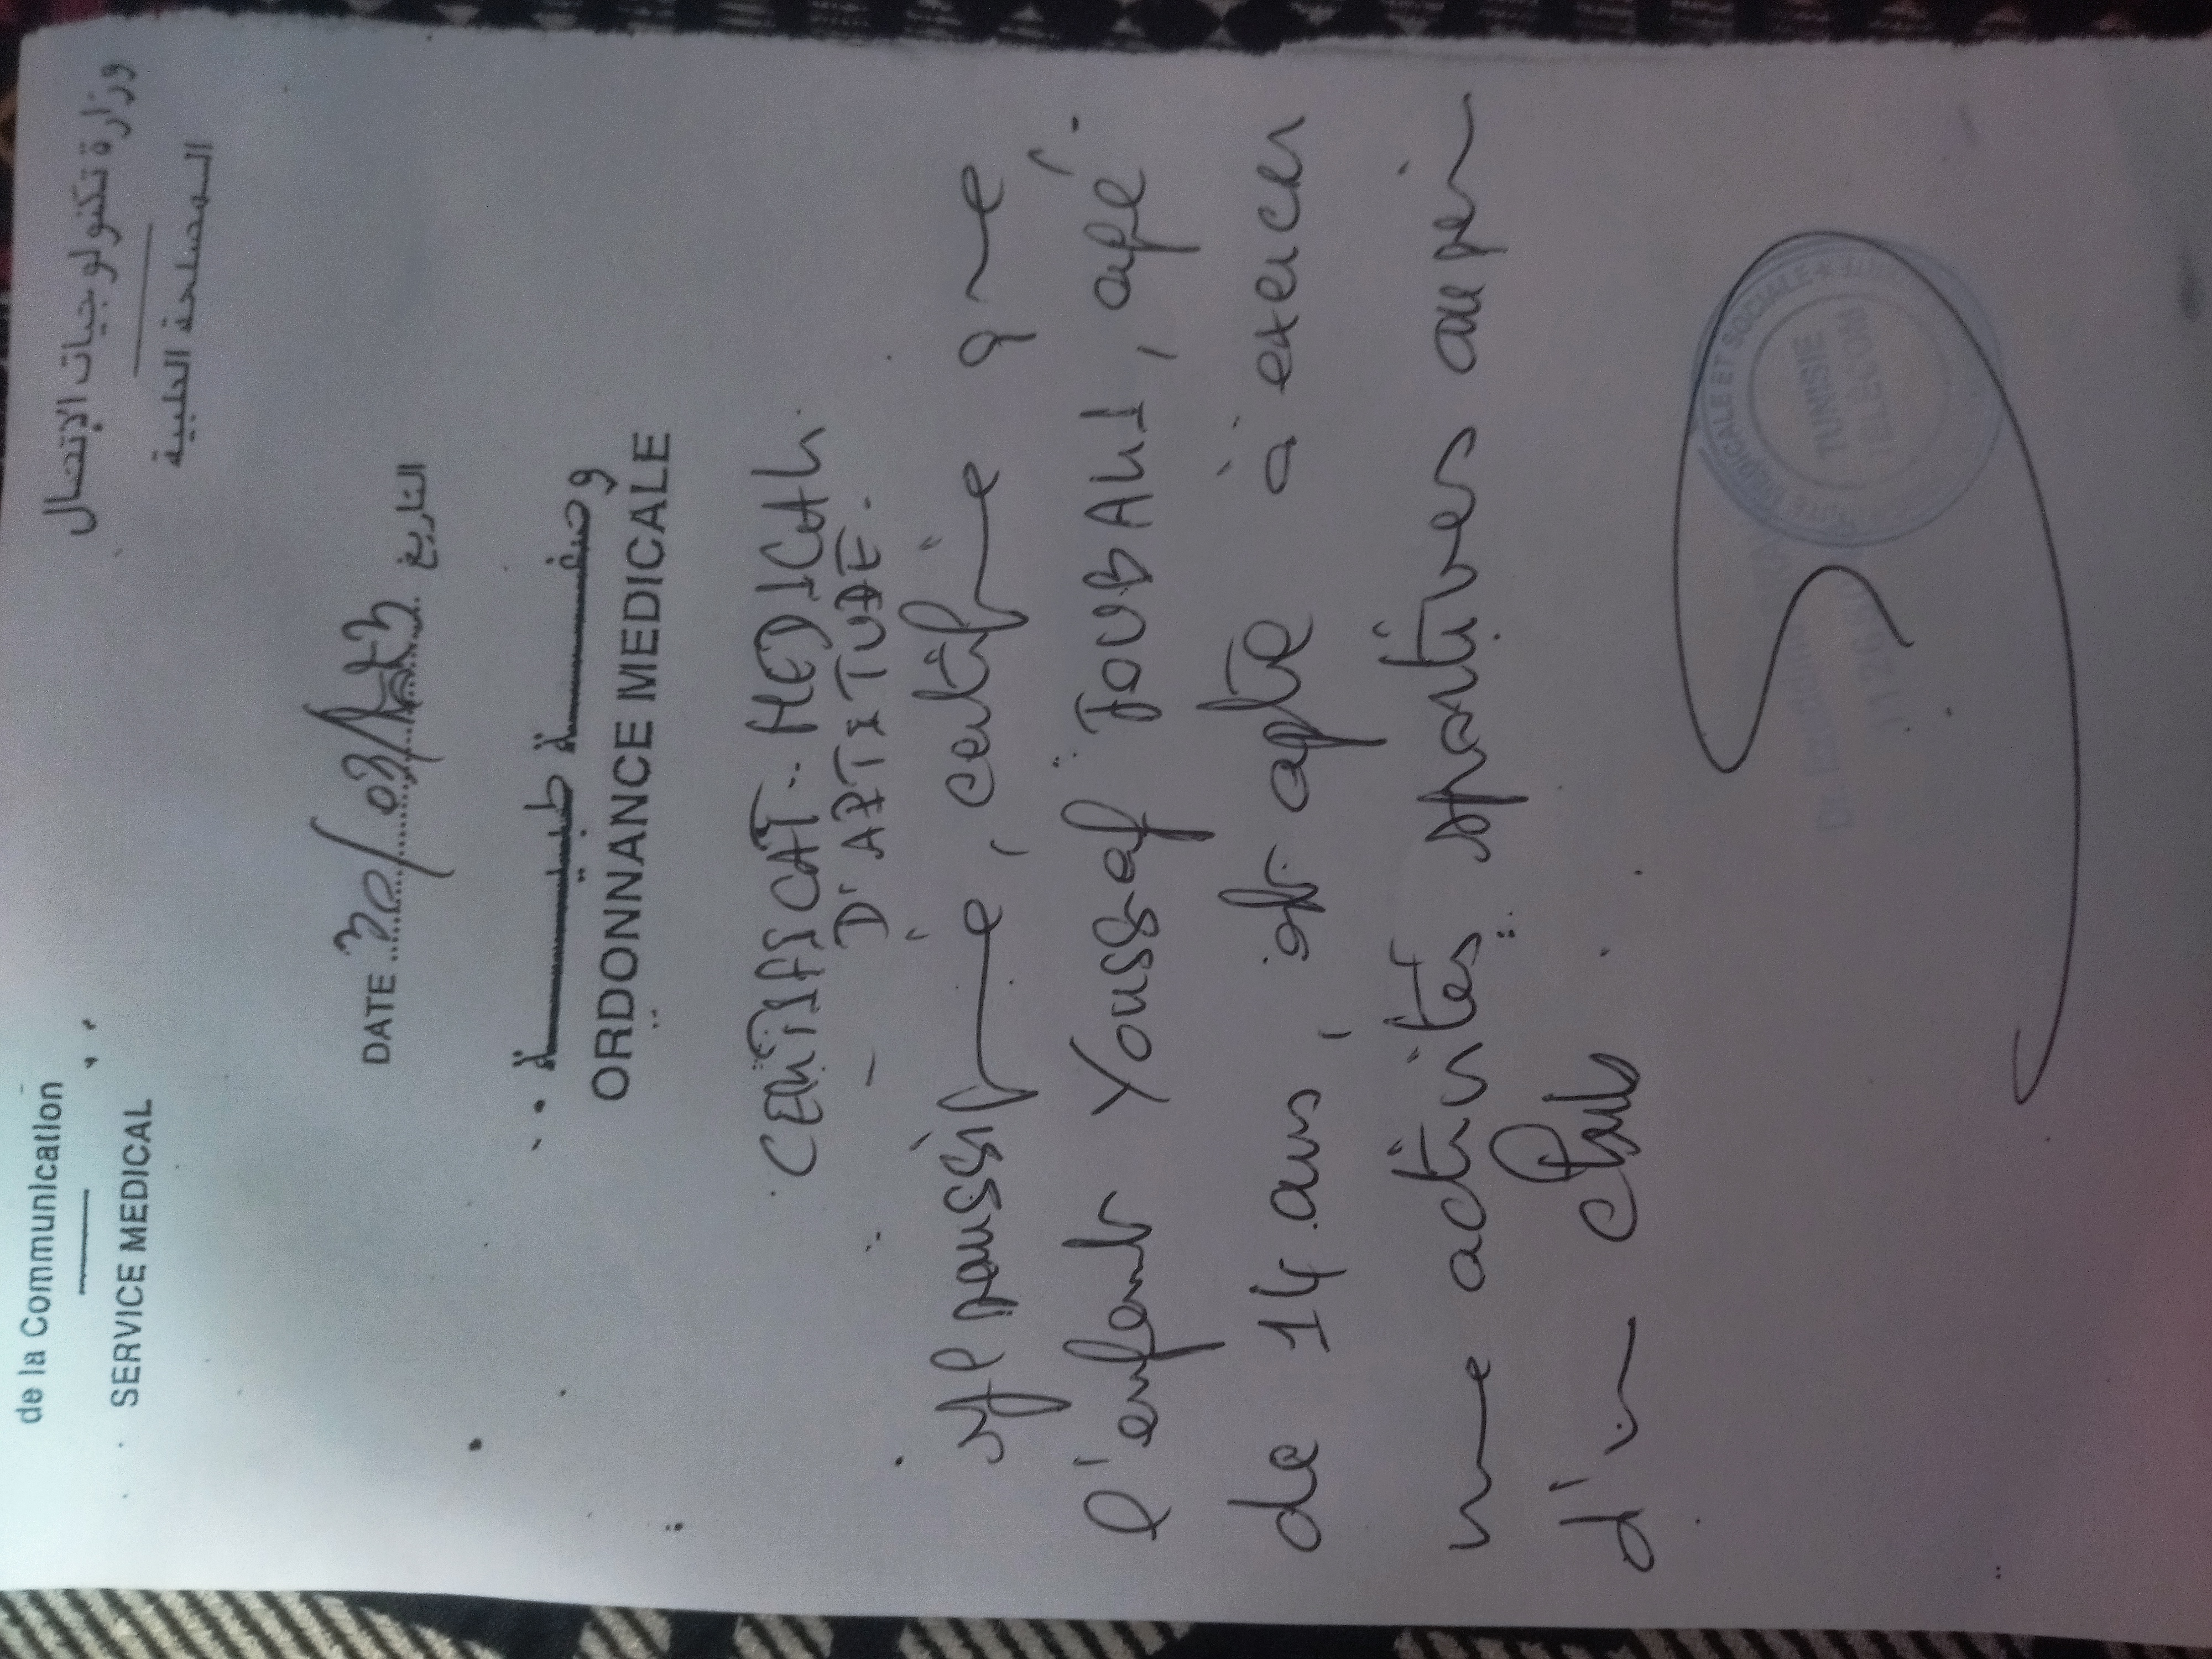 de la Communication
SERVICE MEDICAL
وزارة تكنولوجيات الإتصال
المصلحة الطبية
DATE 30/03/ التاريخ
وصفة طبية
ORDONNANCE MEDICALE
CERTIFICAT MEDICAL
D'APTITUDE.
, certifie que
l'enfant Youssef JOUBAHI, agé
de 14 ans, est apte à exercer
une activités sportives au sein
d'un Club.
MEDICALE ET SOCIALE
TUNISIE
TELECOM
Dr.